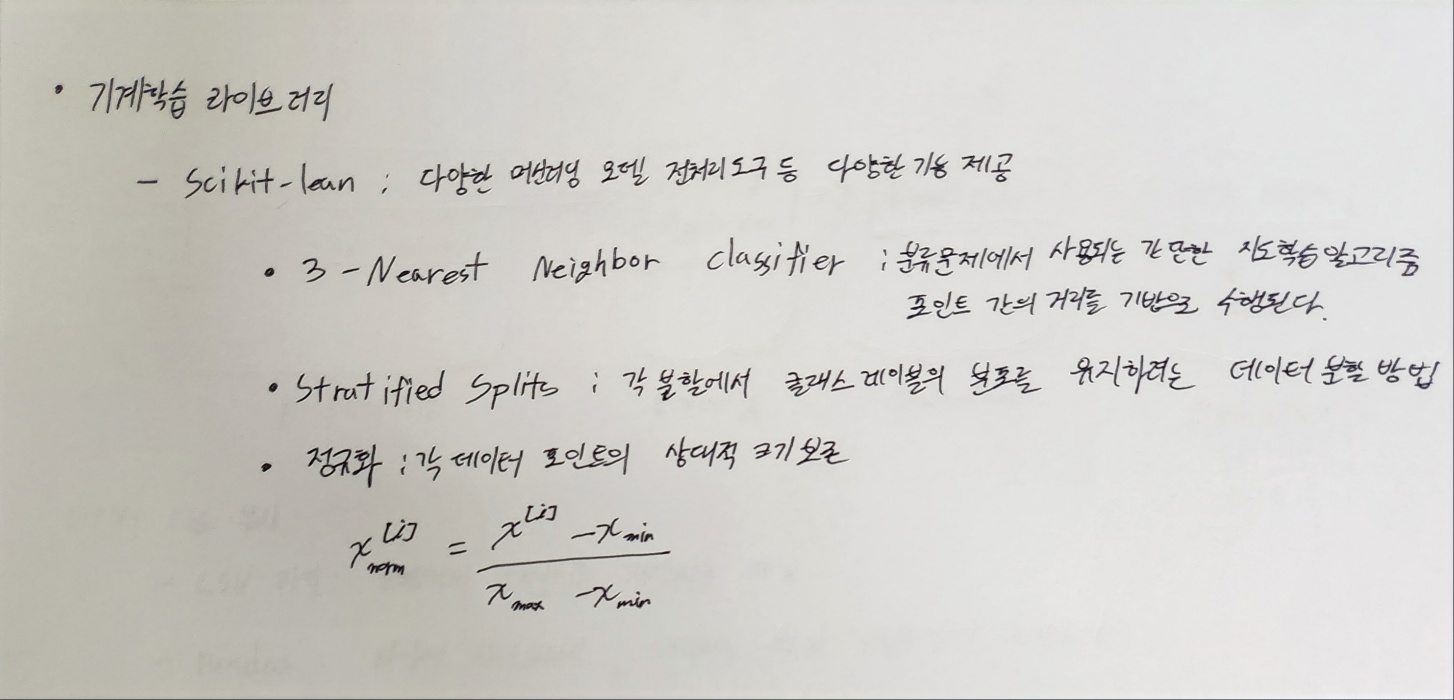 • 기계학습 라이브러리
- Scikit-lean ; 다양한 머신러닝 모델 전처리도구 등 다양한 기능 제공
• 3-Nearest Neighbor Classifier ; 분류문제에서 사용되는 간단한 지도학습 알고리즘
포인트 간의 거리를 기반으로 수행된다.
• Stratified Splits ; 각 분할에서 클래스 레이블의 분포를 유지하려는 데이터 분할 방법
• 정규화 ; 각 데이터 포인트의 상대적 크기 보존
x_norm^[i] = (x^[i] - x_min) / (x_max - x_min)